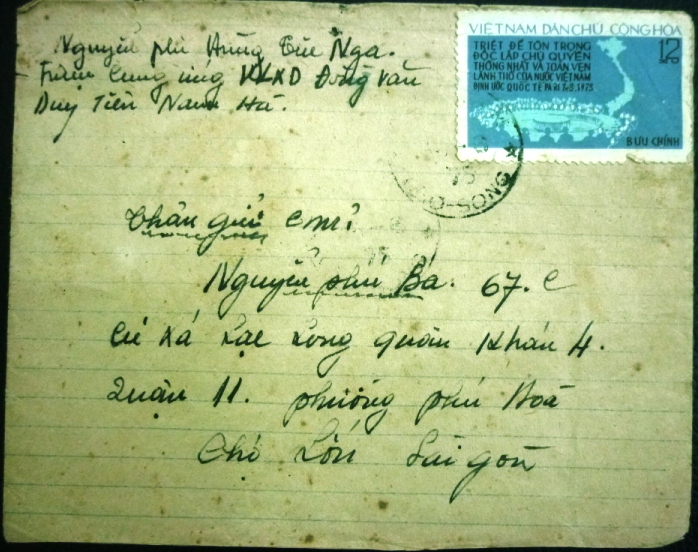 Nguyễn phú Hùng Tuệ Nga.
Trạm Cung ứng VLXD Đồng Văn
Duy Tiên Nam Hà.
VIỆT NAM DÂN CHỦ CỘNG HÒA
TRIỆT ĐỂ TÔN TRỌNG
ĐỘC LẬP CHỦ QUYỀN
THỐNG NHẤT VÀ TOÀN VẸN
LÃNH THỔ CỦA NƯỚC VIỆT NAM
12
BƯU CHÍNH
75
Thân gửi
Nguyễn phú Bá. 67. C
Cư Xá Lạc Long quân Khán 4.
Quận 11. phường phú Hoà
Chợ Lớn Sài gòn